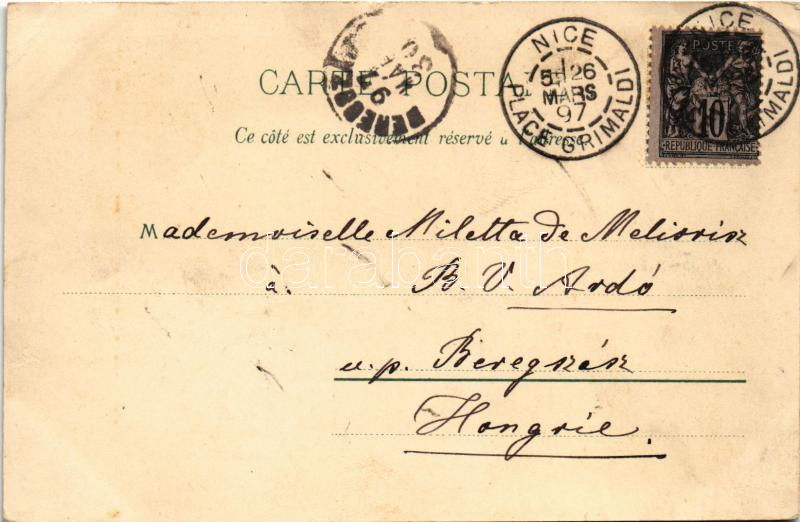 CARTE POSTA
Ce côté est exclusivement réservé à l'adresse
NICE
5H 26
MARS
97
PLACE GRIMALDI
NICE
GRIMALDI
POSTE
10
REPUBLIQUE FRANÇAISE
Mademoiselle Miletta de
à. B. V. Ardó
u.p. Beregszász
Hongrie.
darabanth